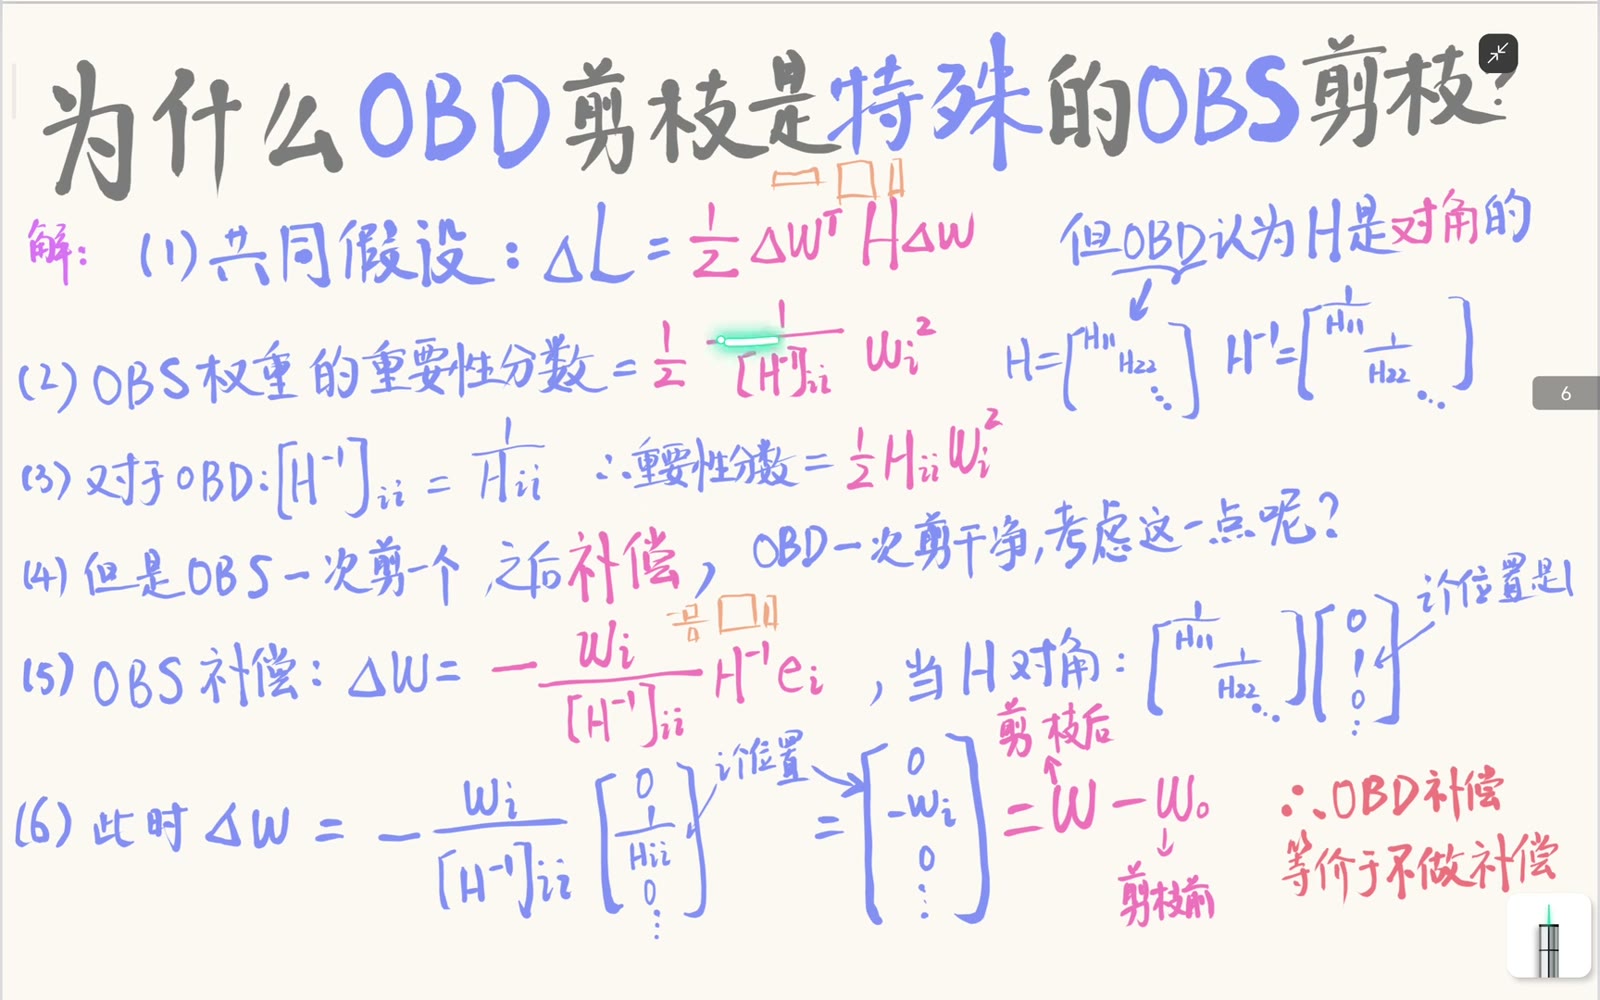 为什么OBD剪枝是特殊的OBS剪枝?
解: (1) 共同假设: ΔL = 1/2 ΔW^T H ΔW 但OBD认为H是对角的
(2) OBS权重的重要性分数 = 1/2 1/[H^-1]ii Wi^2 H = [H11 H22 ⋱] H^-1 = [1/H11 1/H22 ⋱]
(3) 对于OBD: [H^-1]ii = 1/Hii ∴重要性分数 = 1/2 Hii Wi^2
(4) 但是OBS一次剪一个 之后补偿, OBD一次剪干净,考虑这一点呢?
(5) OBS补偿: ΔW = - Wi/[H^-1]ii H^-1 ei , 当H对角: [1/H11 1/H22 ⋱] [0 1 0 ⋮] i个位置是1
(6) 此时 ΔW = - Wi/[H^-1]ii [0 1/Hii 0 ⋮] i个位置 = [0 -Wi 0 ⋮] = W - W0
剪枝后
剪枝前
∴OBD补偿
等价于不做补偿
6